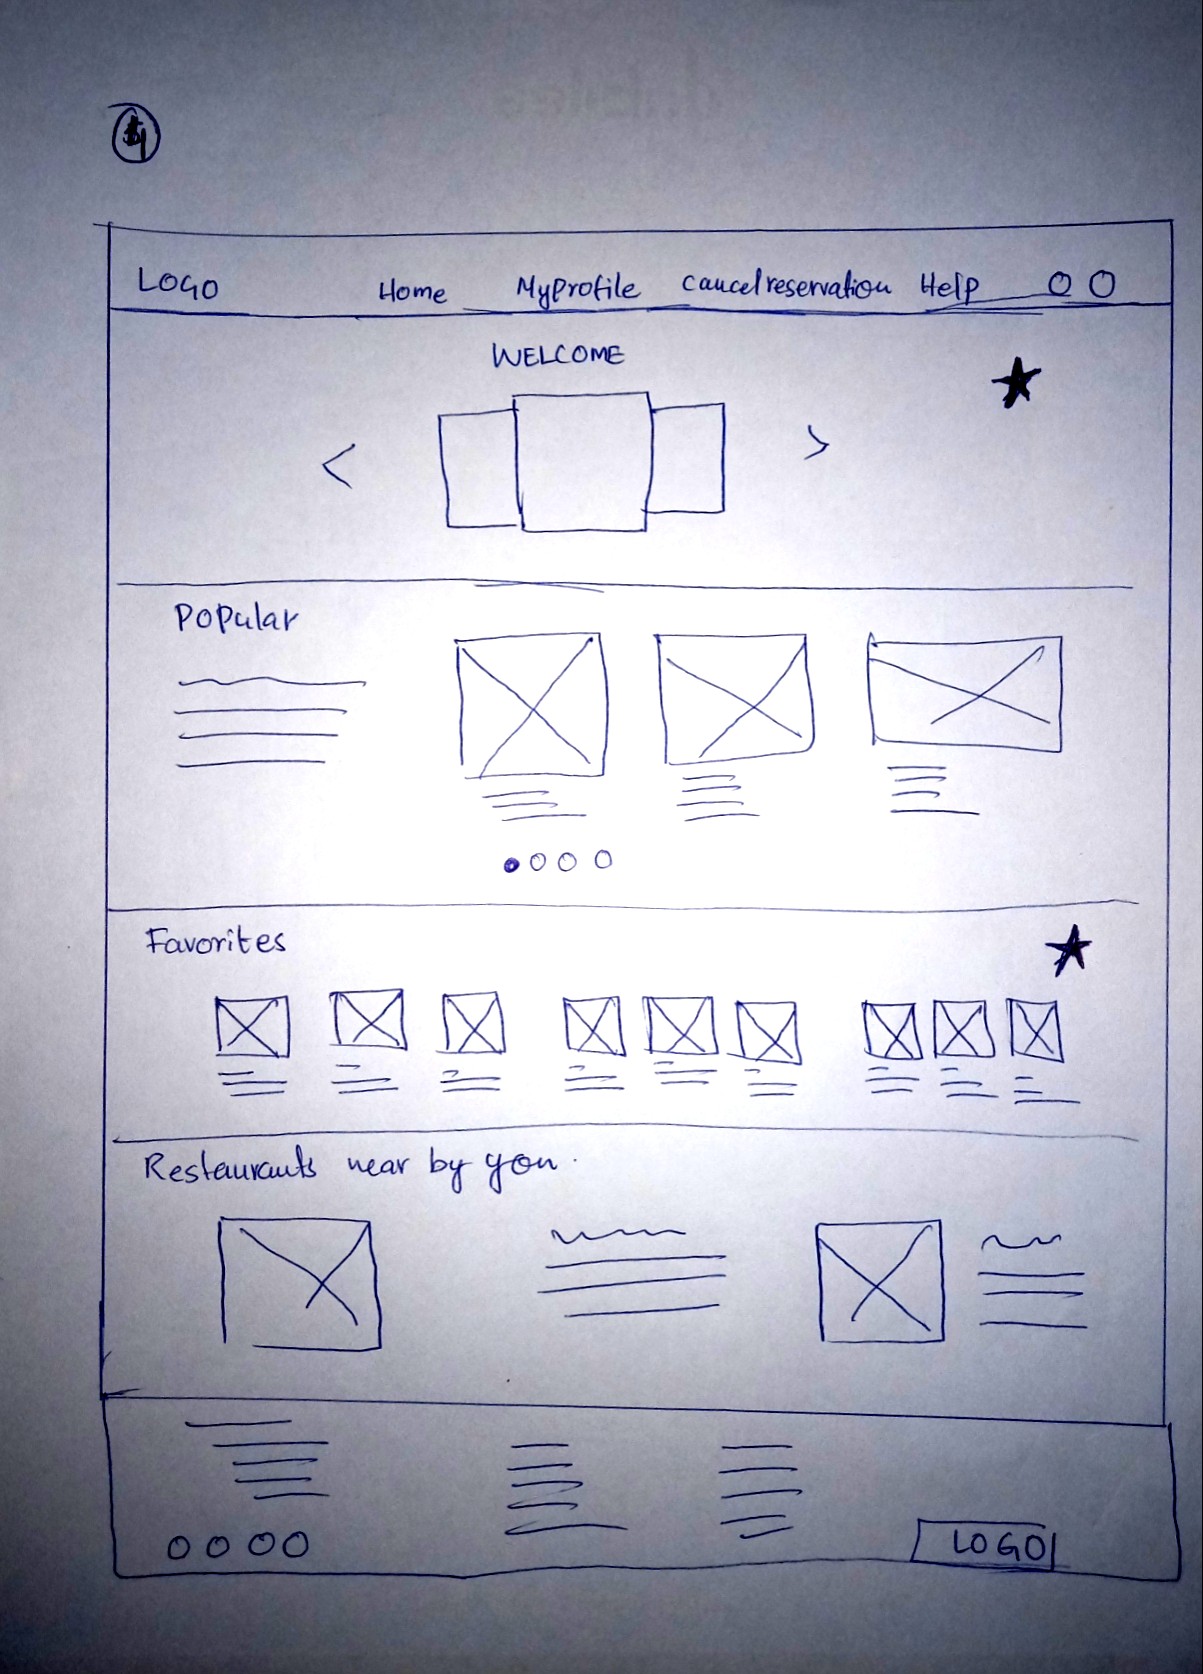 4
LOGO Home MyProfile Cancel reservation Help
WELCOME
< >
Popular
Favorites
Restaurants near by you.
LOGO